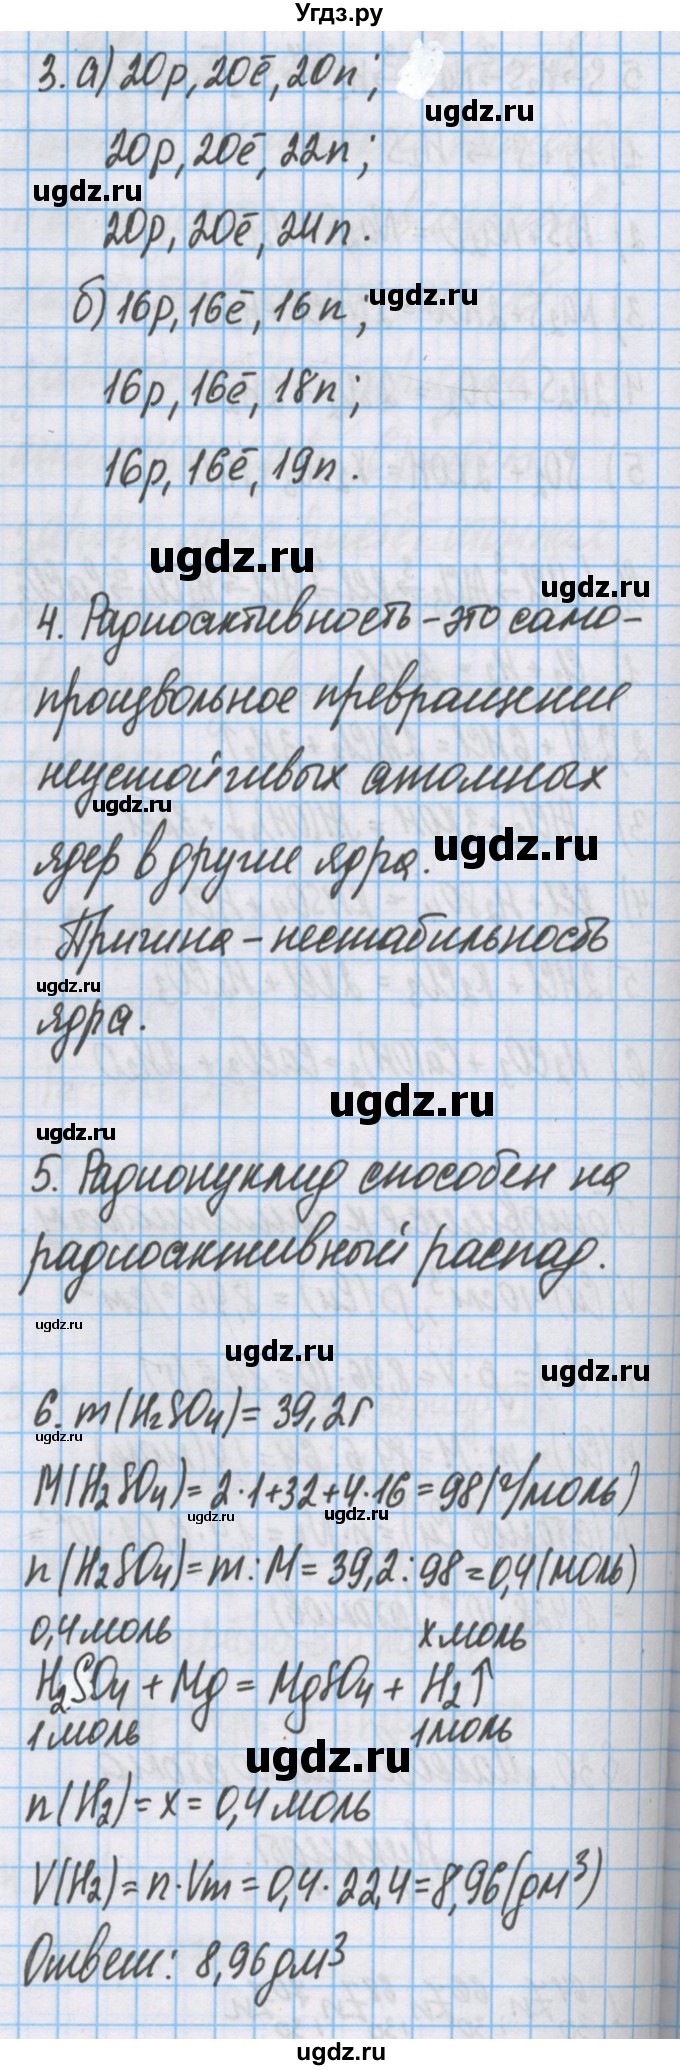 Угдз.ру
3. а) 20p, 20ē, 20n;
ugdz.ru
20p, 20ē, 22n;
ugdz.ru
20p, 20ē, 24n.
б) 16p, 16ē, 16n;
ugdz.ru
16p, 16ē, 18n;
16p, 16ē, 19n.
ugdz.ru
ugdz.ru
4. Радиоактивность – это само-
произвольное превращение
неустойчивых атомных
ugdz.ru
ядер в другие ядра.
ugdz.ru
Причина – нестабильность
ugdz.ru
ядра.
ugdz.ru
ugdz.ru
5. Радионуклид способен на
радиоактивный распад.
ugdz.ru
ugdz.ru
ugdz.ru
6. m(H₂SO₄) = 39,2г
ugdz.ru
M(H₂SO₄) = 2·1+32+4·16 = 98(г/моль)
ugdz.ru
ugdz.ru
n(H₂SO₄) = m : M = 39,2 : 98 = 0,4(моль)
0,4моль xмоль
H₂SO₄ + Mg = MgSO₄ + H₂↑
1моль 1моль
ugdz.ru
n(H₂) = x = 0,4моль
V(H₂) = n·Vm = 0,4·22,4 = 8,96(дм³)
Ответ: 8,96дм³
ugdz.ru